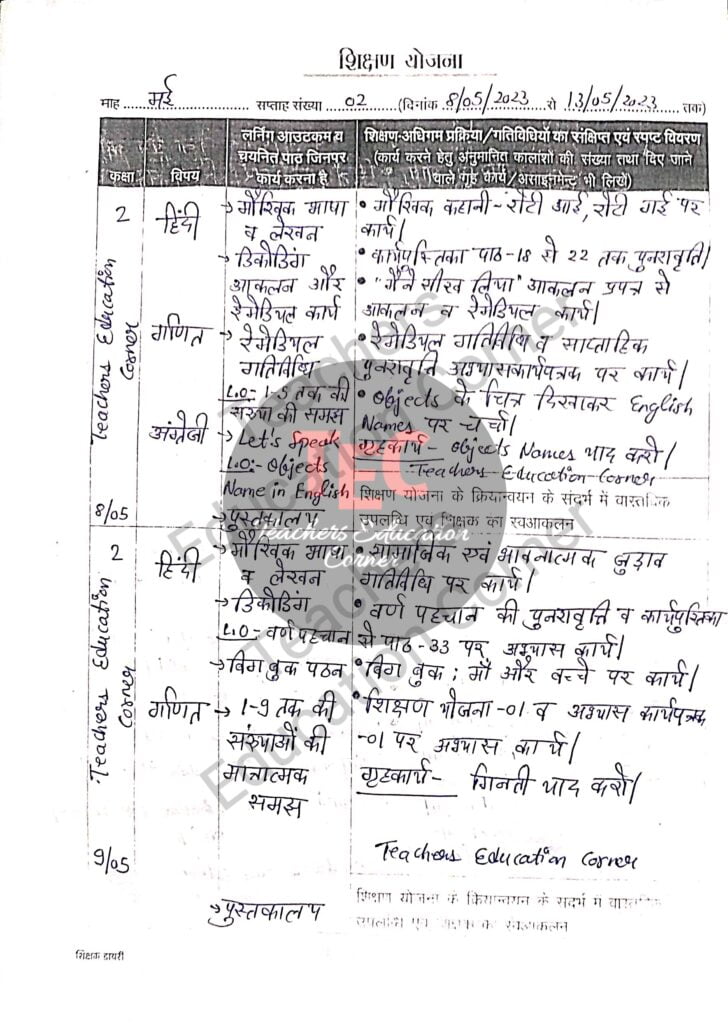 शिक्षण योजना
माह मई सप्ताह संख्या 02 (दिनांक 8/05/2023 से 13/05/2023 तक)
कक्षा
विषय
लर्निंग आउटकम व
चयनित पाठ जिनपर
कार्य करना है
शिक्षण-अधिगम प्रक्रिया/गतिविधियों का संक्षिप्त एवं स्पष्ट विवरण
(कार्य करने हेतु अनुमानित कालांशों की संख्या तथा दिए जाने
वाले गृह कार्य/असाइनमेन्ट भी लिखें)
2
Teachers Education
Corner
8/05
हिंदी
→ मौखिक भाषा
व लेखन
→ डिकोडिंग
आकलन और
रेमेडियल कार्य
• मौखिक कहानी- रोटी आई, रोटी गई पर
कार्य।
• कार्यपुस्तिका पाठ-18 से 22 तक पुनरावृति।
• "मैंने सीख लिया" आकलन प्रपत्र से
आकलन व रेमेडियल कार्य।
गणित
→ रेमेडियल
गतिविधि
L.O:- 1-9 तक की
संख्या की समझ
• रेमेडियल गतिविधि व साप्ताहिक
पुनरावृति अभ्यासकार्यपत्रक पर कार्य।
अंग्रेजी
→ Let's Speak
L.O:- Objects
Name in English
→ पुस्तकालय
• Objects के चित्र दिखाकर English
Names पर चर्चा।
गृहकार्य- Objects Names याद करो।
Teachers Education Corner
शिक्षण योजना के क्रियान्वयन के संदर्भ में वास्तविक
उपलब्धि एवं शिक्षक का स्वआकलन
TEC
Teachers Education
Corner
2
Teachers Education
Corner
9/05
हिंदी
→ मौखिक भाषा
व लेखन
→ डिकोडिंग
L.O- वर्ण पहचान
→ बिग बुक पठन
• सामाजिक एवं भावनात्मक जुड़ाव
गतिविधि पर कार्य।
• वर्ण पहचान की पुनरावृत्ति व कार्यपुस्तिका
से पाठ-33 पर अभ्यास कार्य।
• बिग बुक; माँ और बच्चे पर कार्य।
गणित
→ 1-9 तक की
संख्याओं की
मात्रात्मक
समझ
• शिक्षण योजना-01 व अभ्यास कार्यपत्रक
-01 पर अभ्यास कार्य।
गृहकार्य- गिनती याद करो।
Teachers Education Corner
→ पुस्तकालय
शिक्षण योजना के क्रियान्वयन के संदर्भ में वास्तविक
उपलब्धि एवं शिक्षक का स्वआकलन
शिक्षक डायरी
Teachers
Education Corner
Teachers
Education Corner